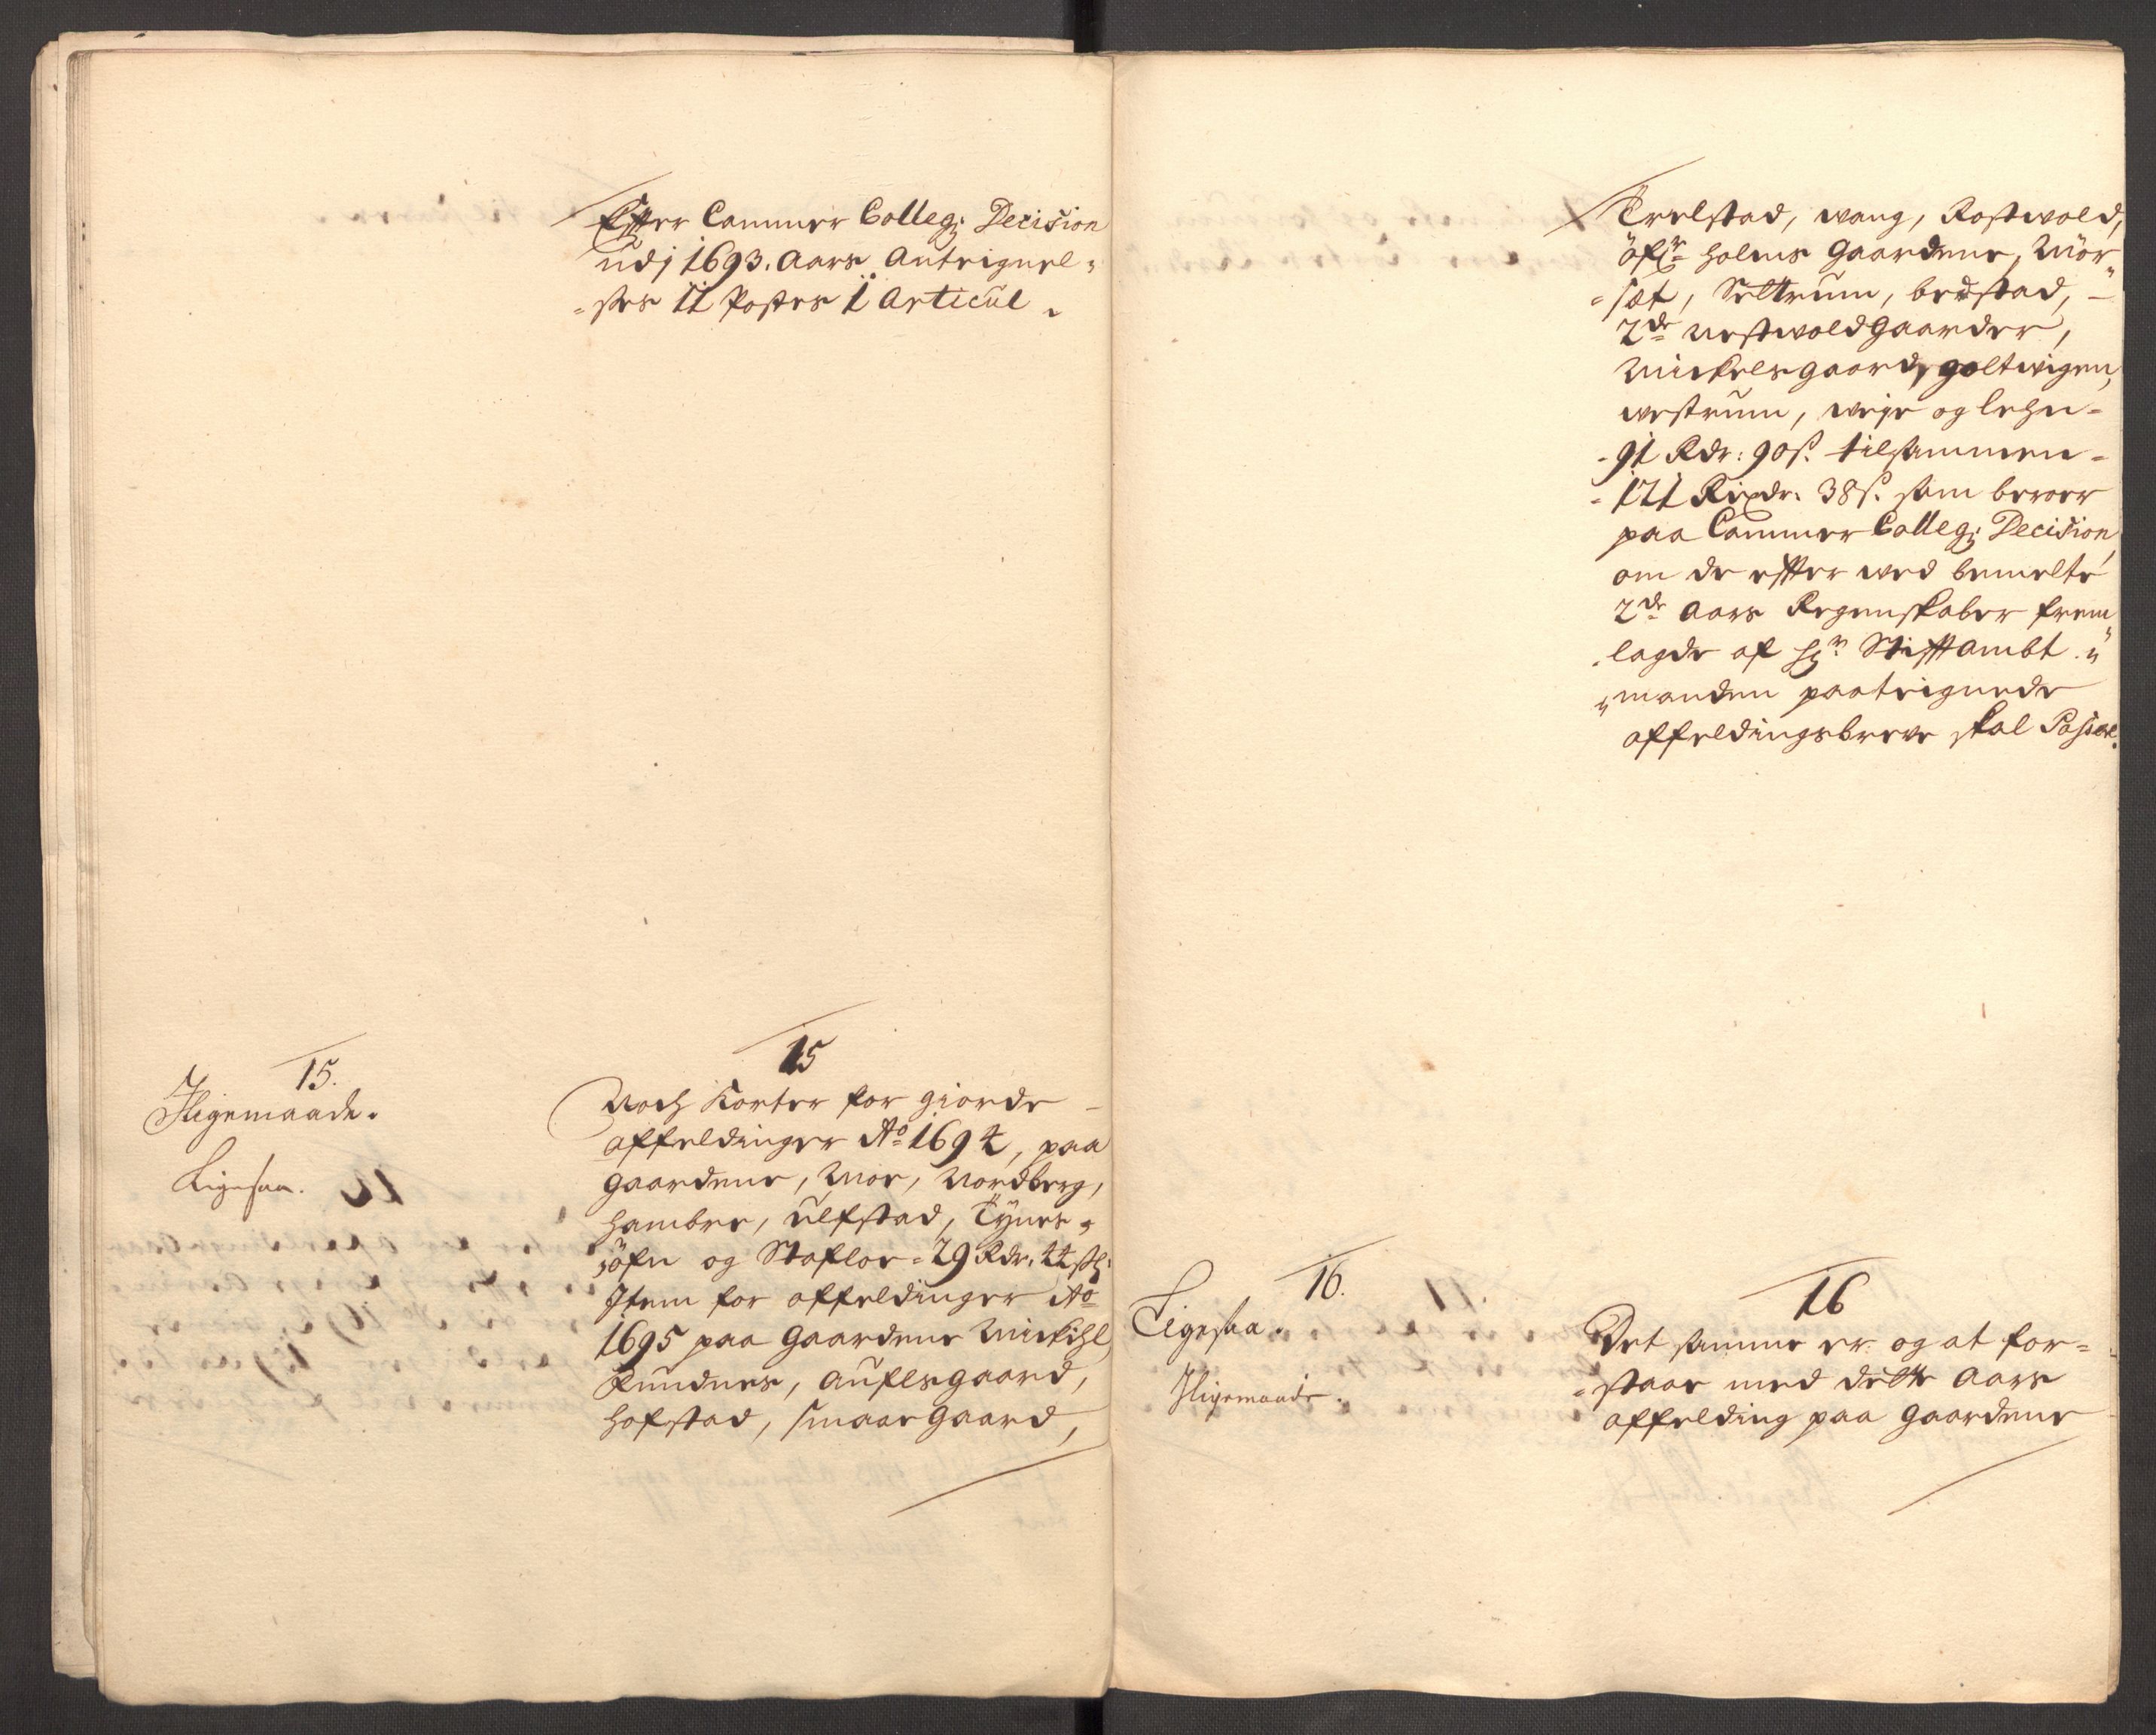 Effter Cammer Collegj Decision
udj 1693. Aars Anteignel-
-ses 11 Postes 1 Articul.
15.
Iligemaade.
Ligesaa.
15
Noch Korter for giorde
affeldinger Ao 1694, paa
gaardene, Moe, Nordberg,
hambre, Ulfstad, Tynes-
öfn og Stoflor - 29 Rdr. 44 sh:
Item for affeldinger Ao
1695 paa gaardene Mickihl
Rundnes, Auflsgaard,
hofstad, smaargaard,
Trelstad, wang, Rostwold,
öfre holms gaardene, Mör-
-set, Seltrum, berstad,
2de Westwoldgaarder,
Mickelsgaard, goltwigen,
westrum, weje og lehn-
-91 Rdr: 90s. tilsammen-
-121 Rixdr. 38s. som beroer
paa Cammer Collegj Decision,
om de effter wed bemelte
2de Aars Regenskaber frem
lagde af hr. Stifftambt
manden paateignede
affeldingsbreve skal Passere.
16.
Ligesaa.
Iligemaade.
16
Det samme er og at for-
-staae med dette Aars
affelding paa gaardene